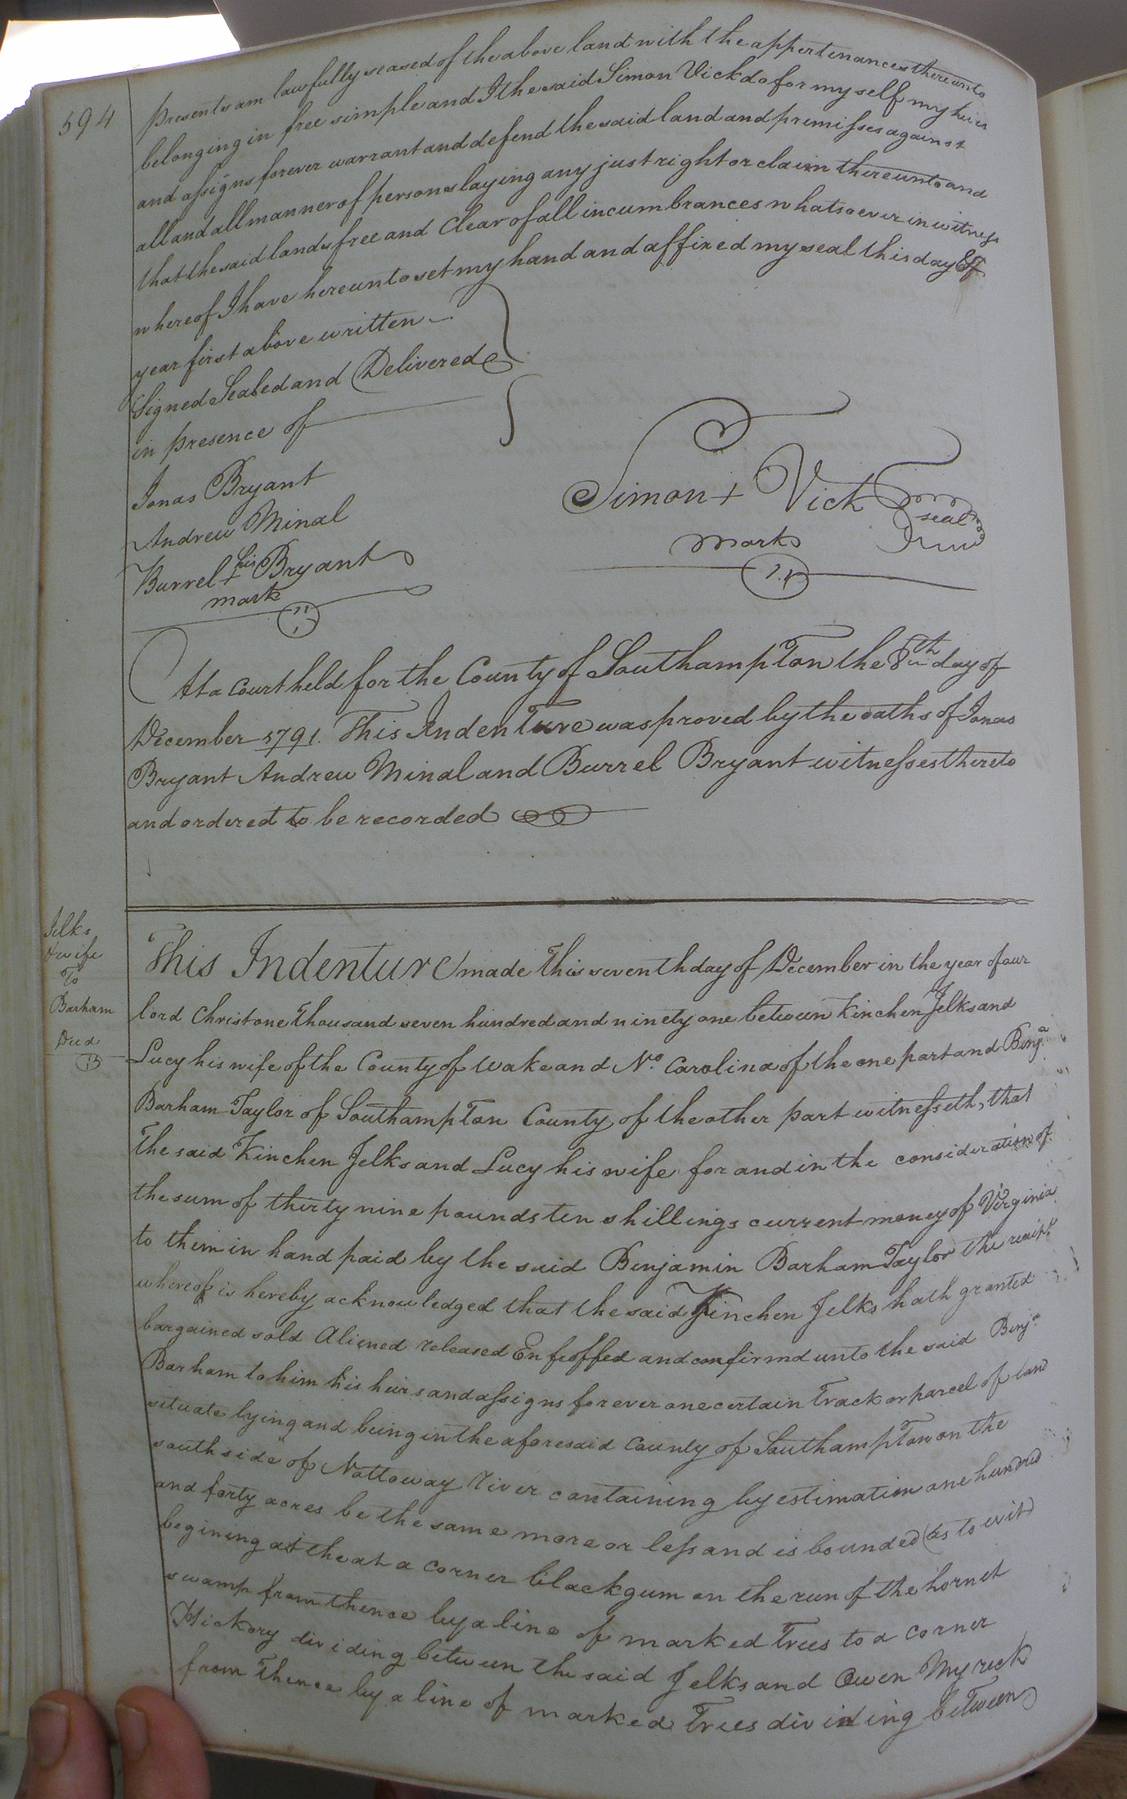 594
presents am lawfully seased of the above land with the appertenances thereunto
belonging in free simple and I the said Simon Vick do for my self my heirs
and assigns forever warrant and defend the said land and premisses against
all and all manner of persons laying any just right or claim thereunto and
that the said lands free and Clear of all incumbrances whatsoever in witness
whereof I have hereunto set my hand and affixed my seal this day &
year first above written
Signed Sealed and Delivered
in presence of
Jonas Bryant
Andrew Minal
Burrel + his Bryant
mark
Simon + Vick seal
mark
At a Court held for the County of Southampton the 8th day of
December 1791. This Indenture was proved by the oaths of Jonas
Bryant Andrew Minal and Burrel Bryant witnesses thereto
and ordered to be recorded
Jelks
& wife
To
Barham
Deed
This Indenture made this seventh day of December in the year of our
lord Christ one thousand seven hundred and ninety one between Kinchen Jelks and
Lucy his wife of the County of Wake and No. Carolina of the one part and Benja.
Barham Taylor of Southampton County of the other part witnesseth, that
the said Kinchen Jelks and Lucy his wife for and in the consideration of
the sum of thirty nine pounds ten shillings current money of Virginia
to them in hand paid by the said Benjamin Barham Taylor the receipt
whereof is hereby acknowledged that the said Kinchen Jelks hath granted
bargained sold Aliened released Enfeoffed and confirmd unto the said Benja.
Barham to him his heirs and assigns forever one certain Track or parcel of land
situate lying and being in the aforesaid County of Southampton on the
south side of Nottoway River containing by estimation one hundred
and forty acres be the same more or less and is bounded (as to wit)
begining at the at a corner black gum on the run of the hornet
swamp from thence by a line of marked Trees to a corner
Hickory dividing between the said Jelks and Owen Myrick
from Thence by a line of marked Trees dividing between